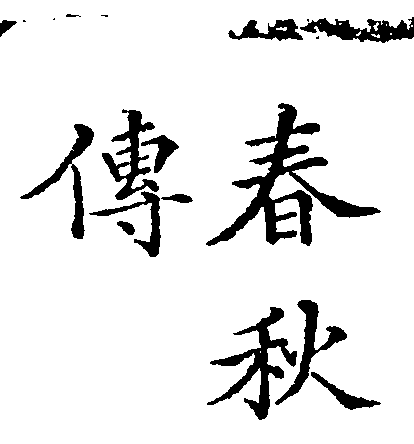 春秋
傳